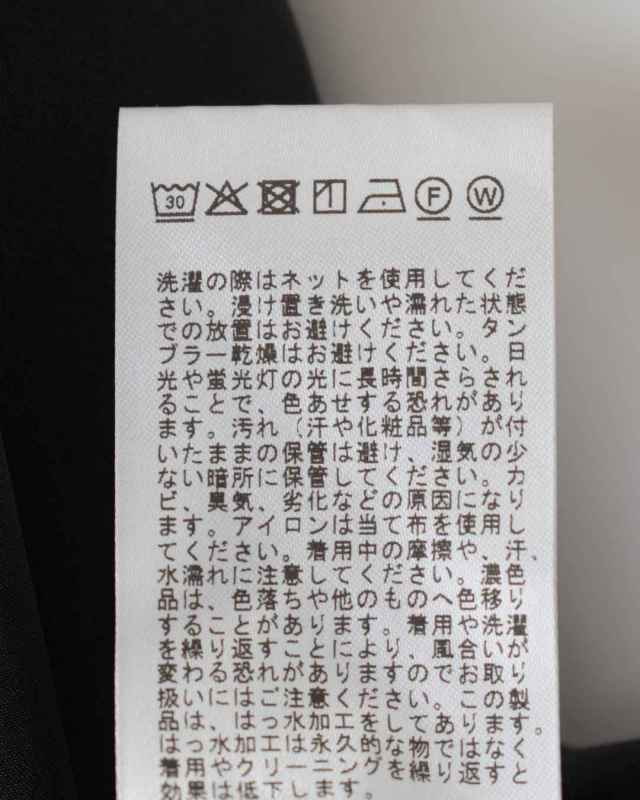 30 F W
洗濯の際はネットを使用してくだ
さい。浸け置き洗いや濡れた状態
での放置はお避けください。タン
ブラー乾燥はお避けください。日
光や蛍光灯の光に長時間さらされ
ることで、色あせする恐れがあり
ます。汚れ（汗や化粧品等）が付
いたままの保管は避け、湿気の少
ない暗所に保管してください。カ
ビ、臭気、劣化などの原因になり
ます。アイロンは当て布を使用し
てください。着用中の摩擦や、汗、
水濡れに注意してください。濃色
品は、色落ちや他のものへ色移り
することがあります。着用や洗濯
を繰り返すことにより、風合いが
変わる恐れがありますのでお取り
扱いにはご注意ください。この製
品は、はっ水加工をしてあります。
はっ水加工は永久的な物ではなく
着用やクリーニングを繰り返すと
効果は低下します。